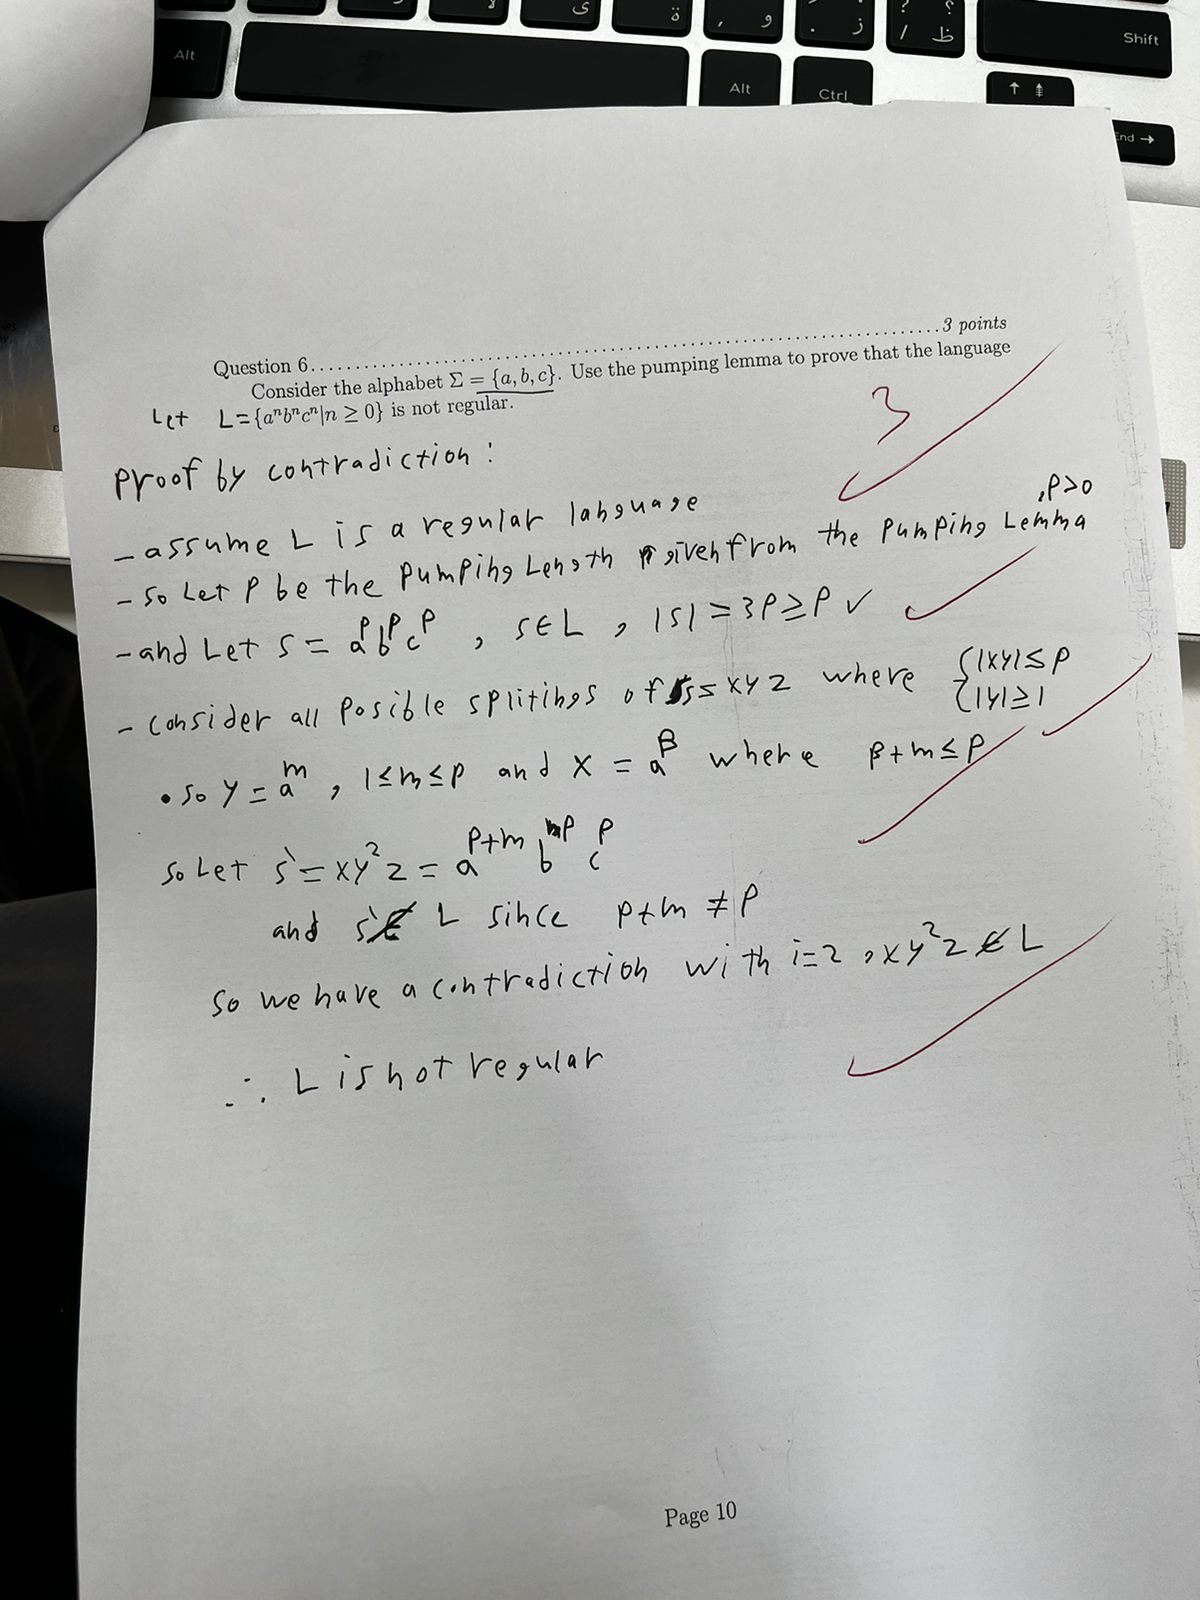 ى
ة
و
ز
ظ
Shift
Alt
Alt
Ctrl
End →
Question 6.......... 3 points
Consider the alphabet Σ = {a, b, c}. Use the pumping lemma to prove that the language
Let L={aⁿbⁿcⁿ|n ≥ 0} is not regular.
3
proof by contradiction :
- assume L is a regular language
, P>0
- so Let P be the Pumping Length given from the Pumping Lemma
- and Let S = a^P b^P c^P , S∈L , |S| = 3P ≥ P ✓
- consider all Posible splitings of S = xyz where { |xy| ≤ P
{ |y| ≥ 1
• so y = a^m , 1≤m≤P and x = a^β where β+m ≤ P
so Let s' = xy²z = a^P+m b^P c^P
and s' ∉ L since P+m ≠ P
so we have a contradiction with i=2 , xy²z ∉ L
∴ L is not regular
Page 10